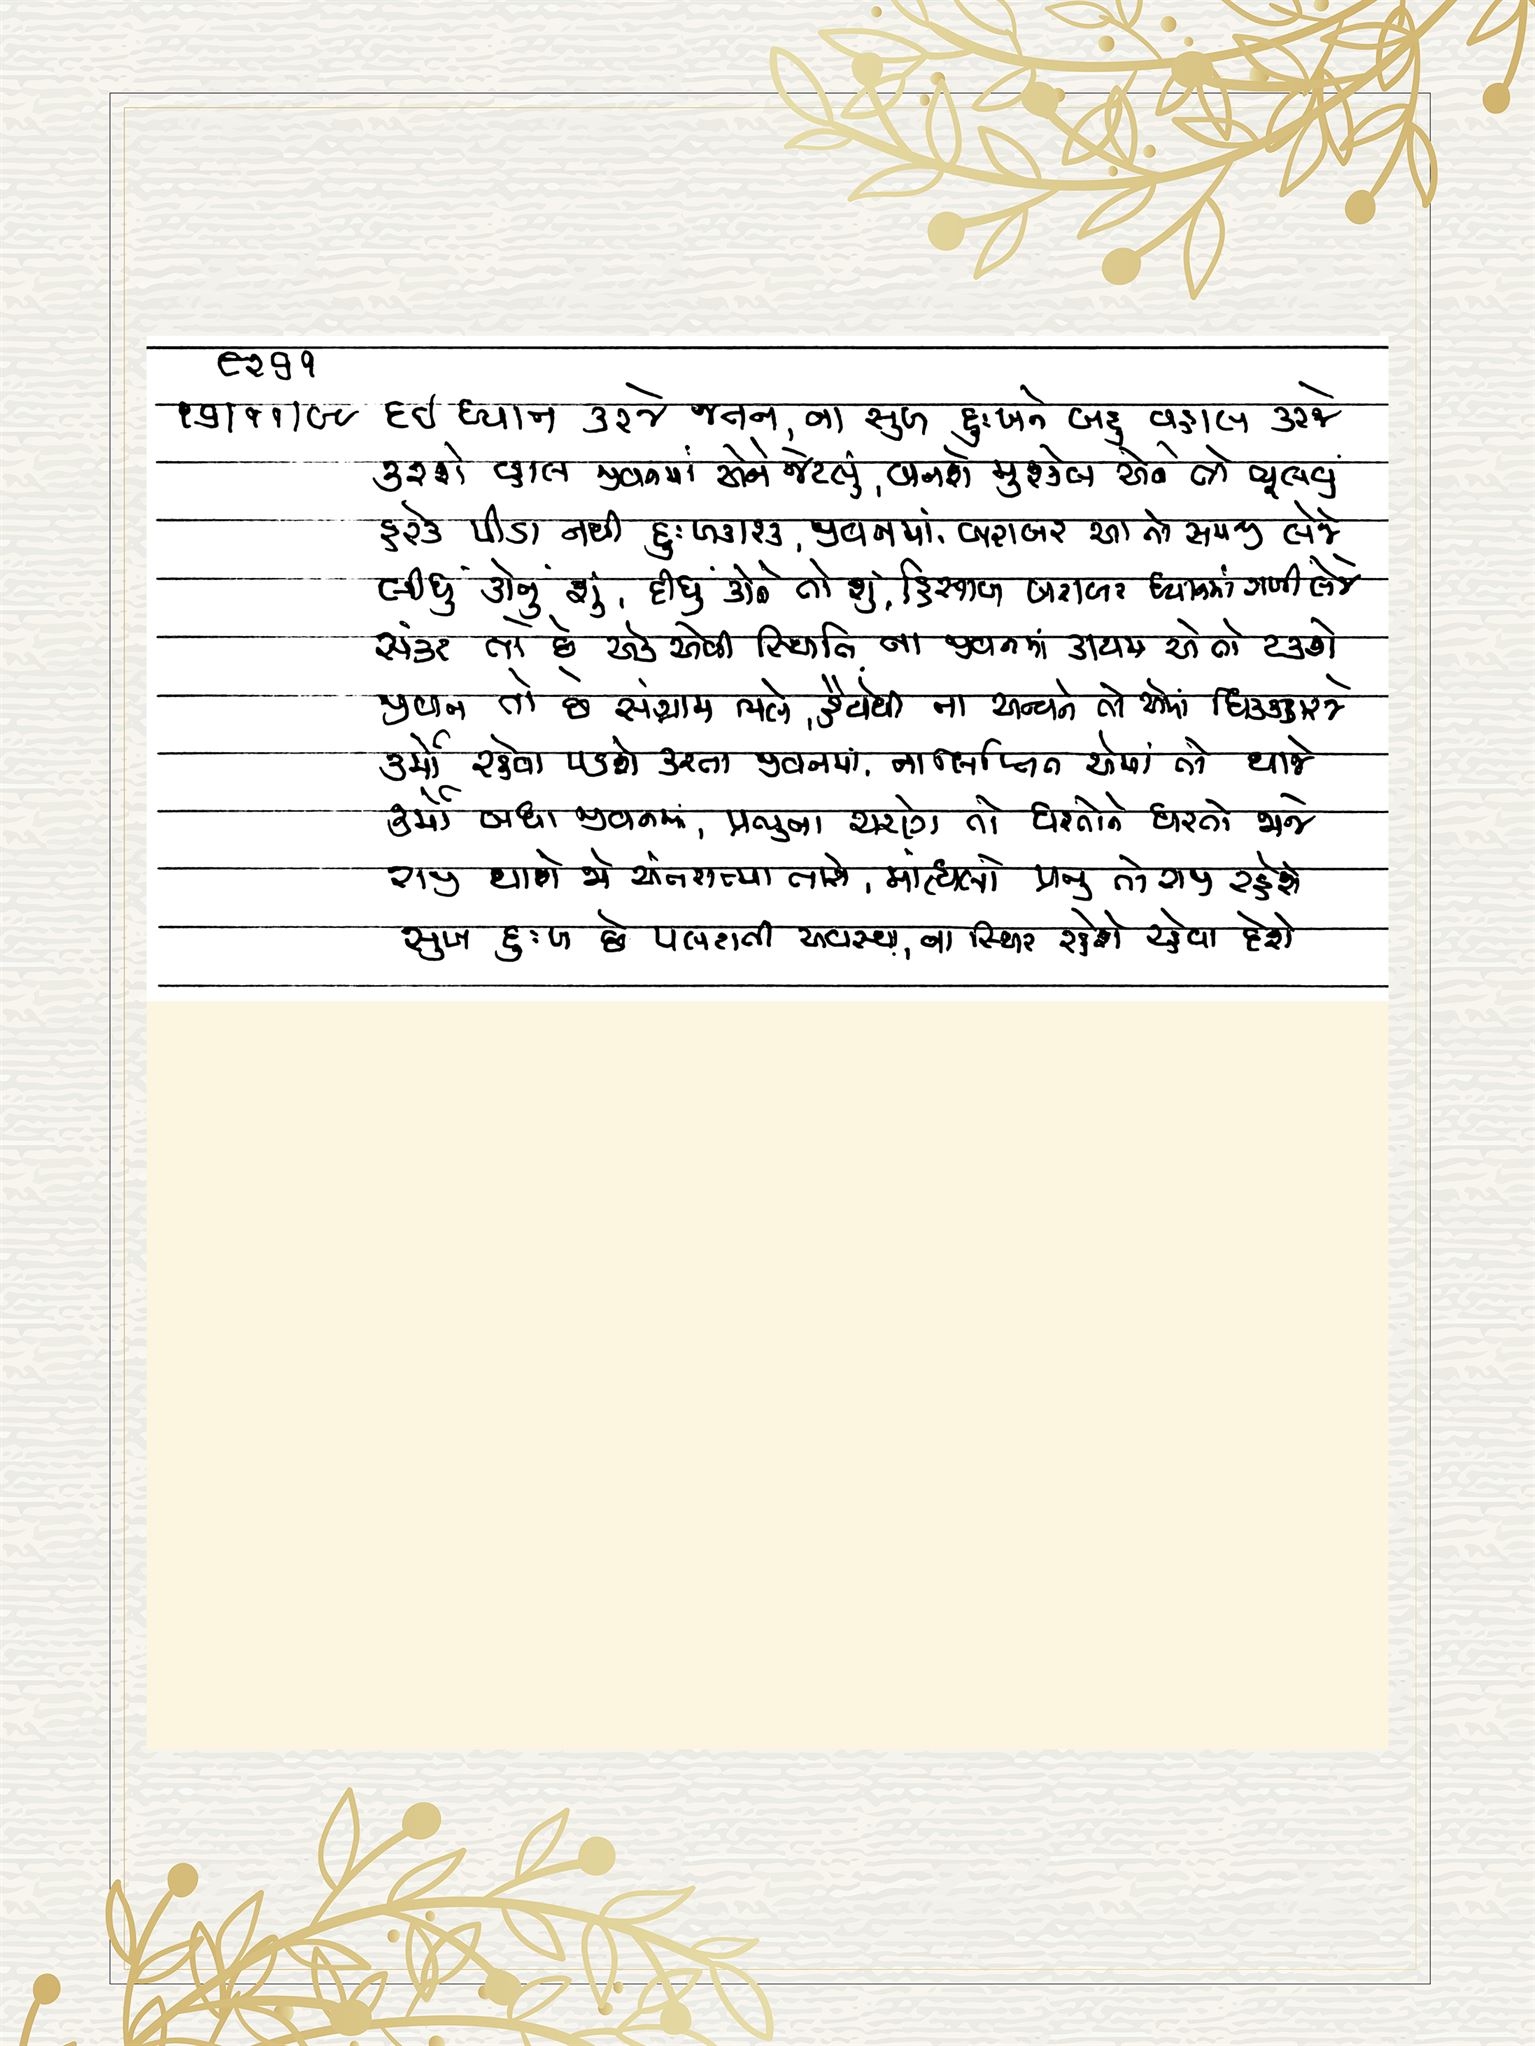 ૯૨૭૧
દઈ ધ્યાન કરજે જતન, ના સુખ દુઃખને બહુ વહાલ કરજે
કરશે વહાલ જીવનમાં એને જેટલું, બનશે મુશ્કેલ એને તો ભૂલવું
હરેક પીડા નથી દુઃખકારક, જીવનમાં બરાબર આ તો સમજી લેજે
લીધું કોનું શું, દીધું કોને તો શું, હિસાબ બરાબર ધ્યાનમાં ગણી લેજે
સંકટ તો છે એક એવી સ્થિતિ ના જીવનમાં કાયમ એ તો ટકશે
જીવન તો છે સંગ્રામ ભલે, ના અન્યને તો એમાં
કર્મો રહેવા પડશે કરતા જીવનમાં, ના લિપ્ત એમાં તો થાજે
કર્મો બધા જીવનમાં, પ્રભુના ચરણે તો ધરતો ને ધરતો જાજે
રાજી થાશે જે અંતરાત્મા તારો, માંહ્યલો પ્રભુ તો રાજી રહેશે
સુખ દુઃખ છે પલટાતી અવસ્થા, ના સ્થિર રહેશે રહેવા દેશે